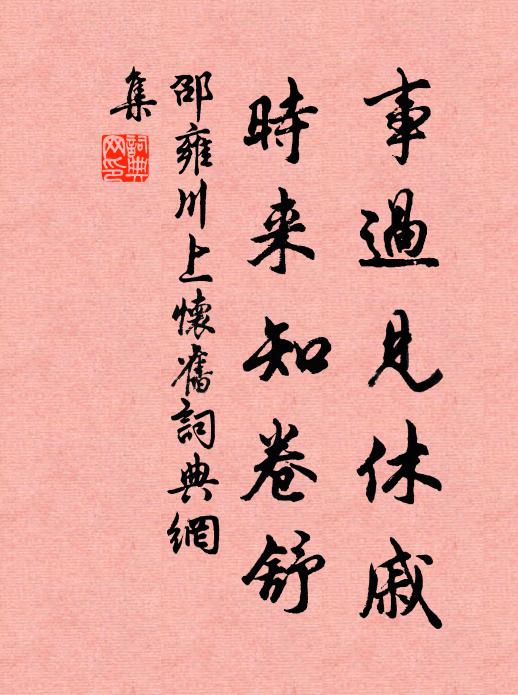 事過見休戚
時来知卷舒
邵雍川上懷舊詞典網
集
詞典
网印